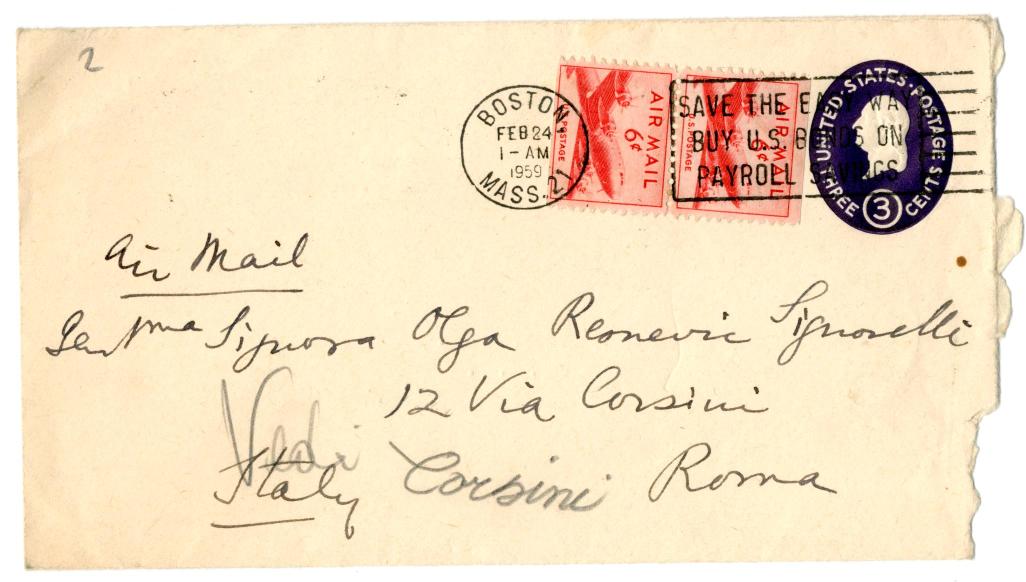 2
BOSTON
FEB 24
1-AM
1959
MASS. 21
AIR MAIL
6¢
U.S. POSTAGE
AIR MAIL
6¢
U.S. POSTAGE
SAVE THE EASY WAY
BUY U.S. BONDS ON
PAYROLL SAVINGS
UNITED·STATES·POSTAGE
THREE 3 CENTS
Air Mail
Gentma Signora Olga Resnevic Signorelli
12 Via Corsini
Vedi
Italy Corsini Roma